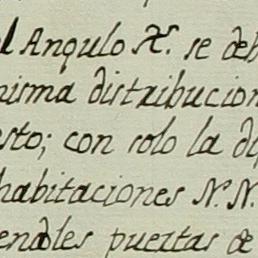 l Angulo A. se deb
misma distribucion
esto; con solo la di
habitaciones N. N.
endoles puertas de